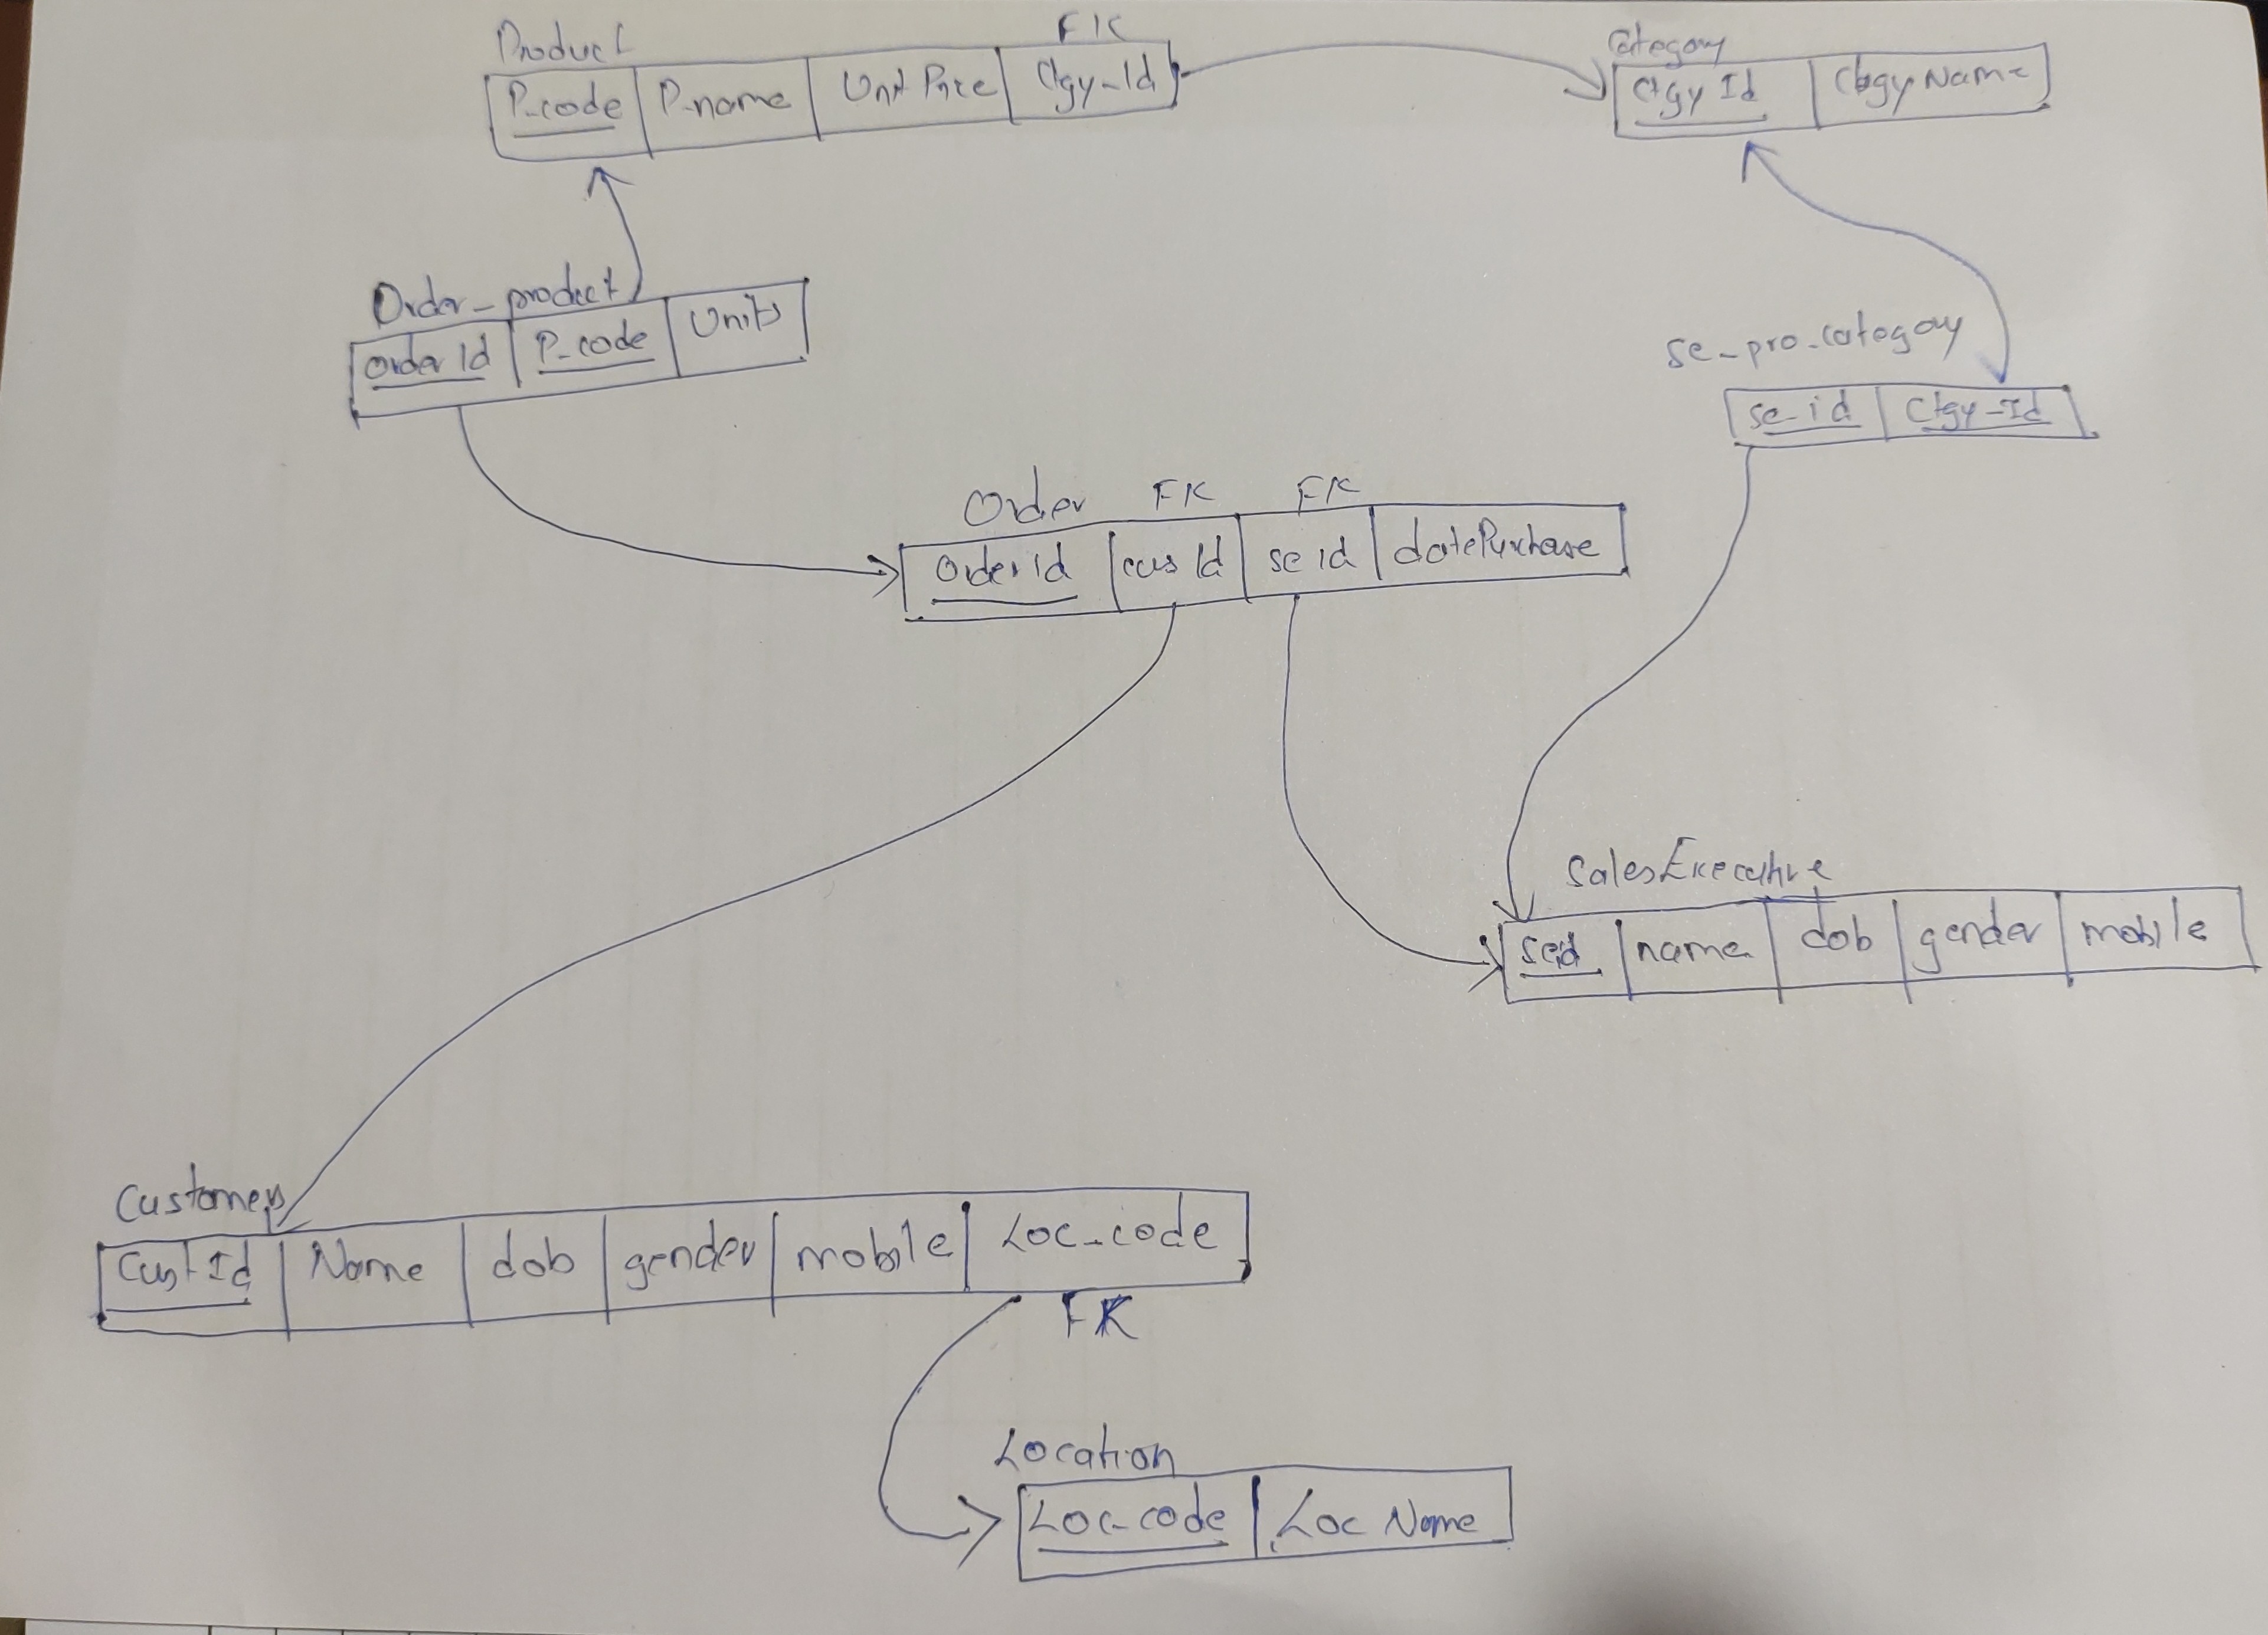 Product FK
P-code P-name Unit Price Ctgy-Id
Category
Ctgy Id Ctgy Name
Order-product
Order Id P-code Units
se-pro-category
se-id Ctgy-Id
Order FK FK
Order Id cus Id se id datePurchase
SalesExecutive
seid name dob gender mobile
Customers
Cust Id Name dob gender mobile Loc-code
FK
Location
Loc-code Loc Name